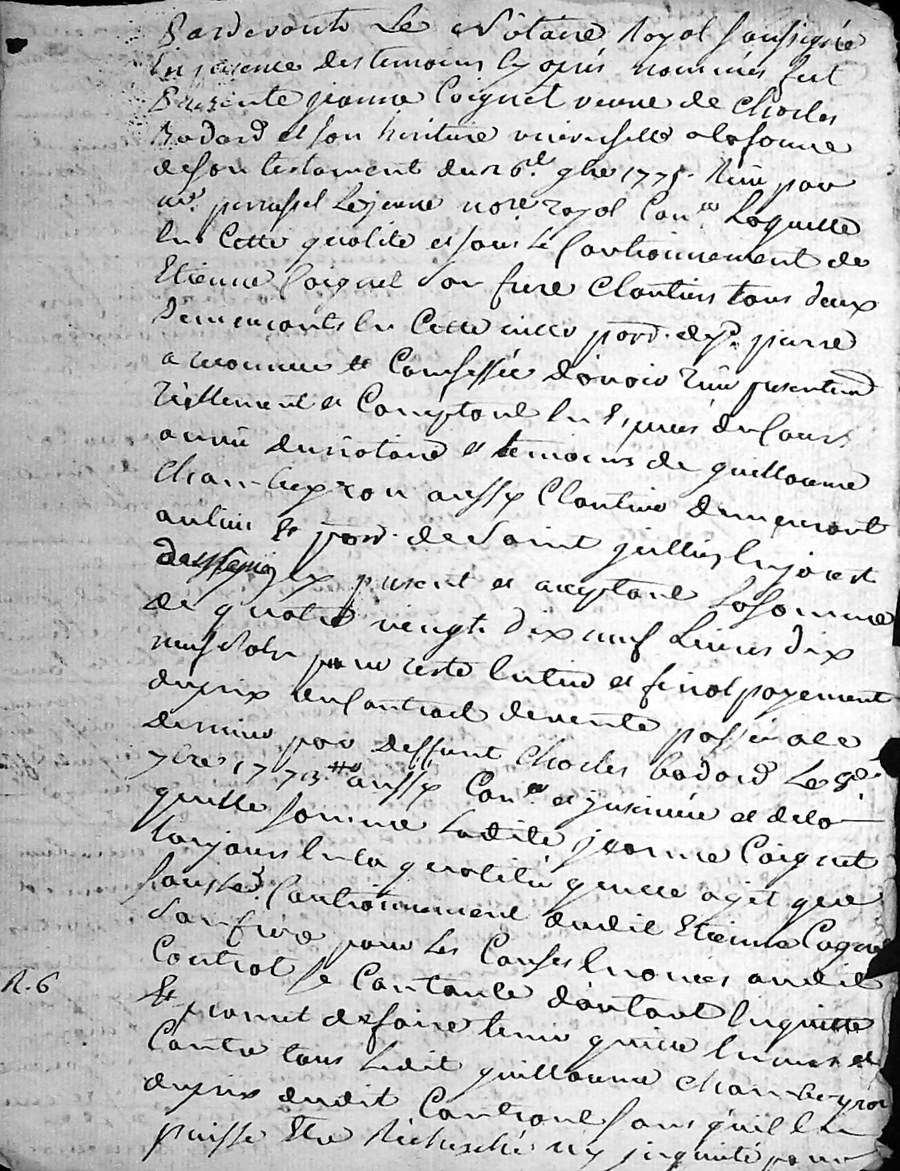 Pardevant Le Notaire Royal soussigné
En presence des temoins cy après nommés fut
Presente jeanne Coignet veuve de Charles
Badard et son heritiere universelle a la forme
de son testament du 26e. 9bre 1775. Reçu par
me. perrussel Lejeune nore royal Con.lé Laquelle
En Cette qualité et sous Le Cautionnement de
Etienne Coignet son frere Cloutiers tous deux
Demeurants En Cette ville par. de St. pierre
a reconnu et Confessée d'avoir Reçu presentemt
Réellement et Comptant En Espèces de Cours
a vuë du notaire et temoins de guillaume
Chambeyron aussy Cloutier demeurant
au lieu par. de Saint jullien En jarest
present et acceptant La Somme
de quatre vingt dix neuf Livres dix
neuf sols pour reste Entier et final payement
du prix du Contract de vente passé a ce
dernier par deffunt Charles badard Le 9e.
7bre 1773 aussy Con.lé et jnsinué et de la
quelle somme Ladite jeanne Coignet
toujours En la qualité qu'elle agit que
sous Le Cautionnement dudit Etienne Cognet
Son frere pour Les Causes Enoncées audit
Contrat Se Contante d'autant En quitte
R. 6
Et promet de faire tenir quitte Envers et
Contre tous Ledit guillaume Chambeyron
du prix dudit Contract sans qu'il En
puisse Etre Recherché ny jnquiété pour